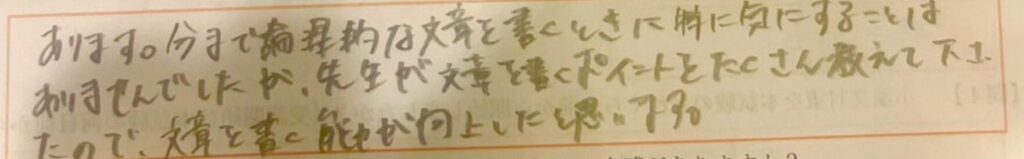 あります。今まで論理的な文章を書くときに特に気にすることは
ありませんでしたが、先生が文章を書くポイントをたくさん教えて下さっ
たので、文章を書く能力が向上したと思います。